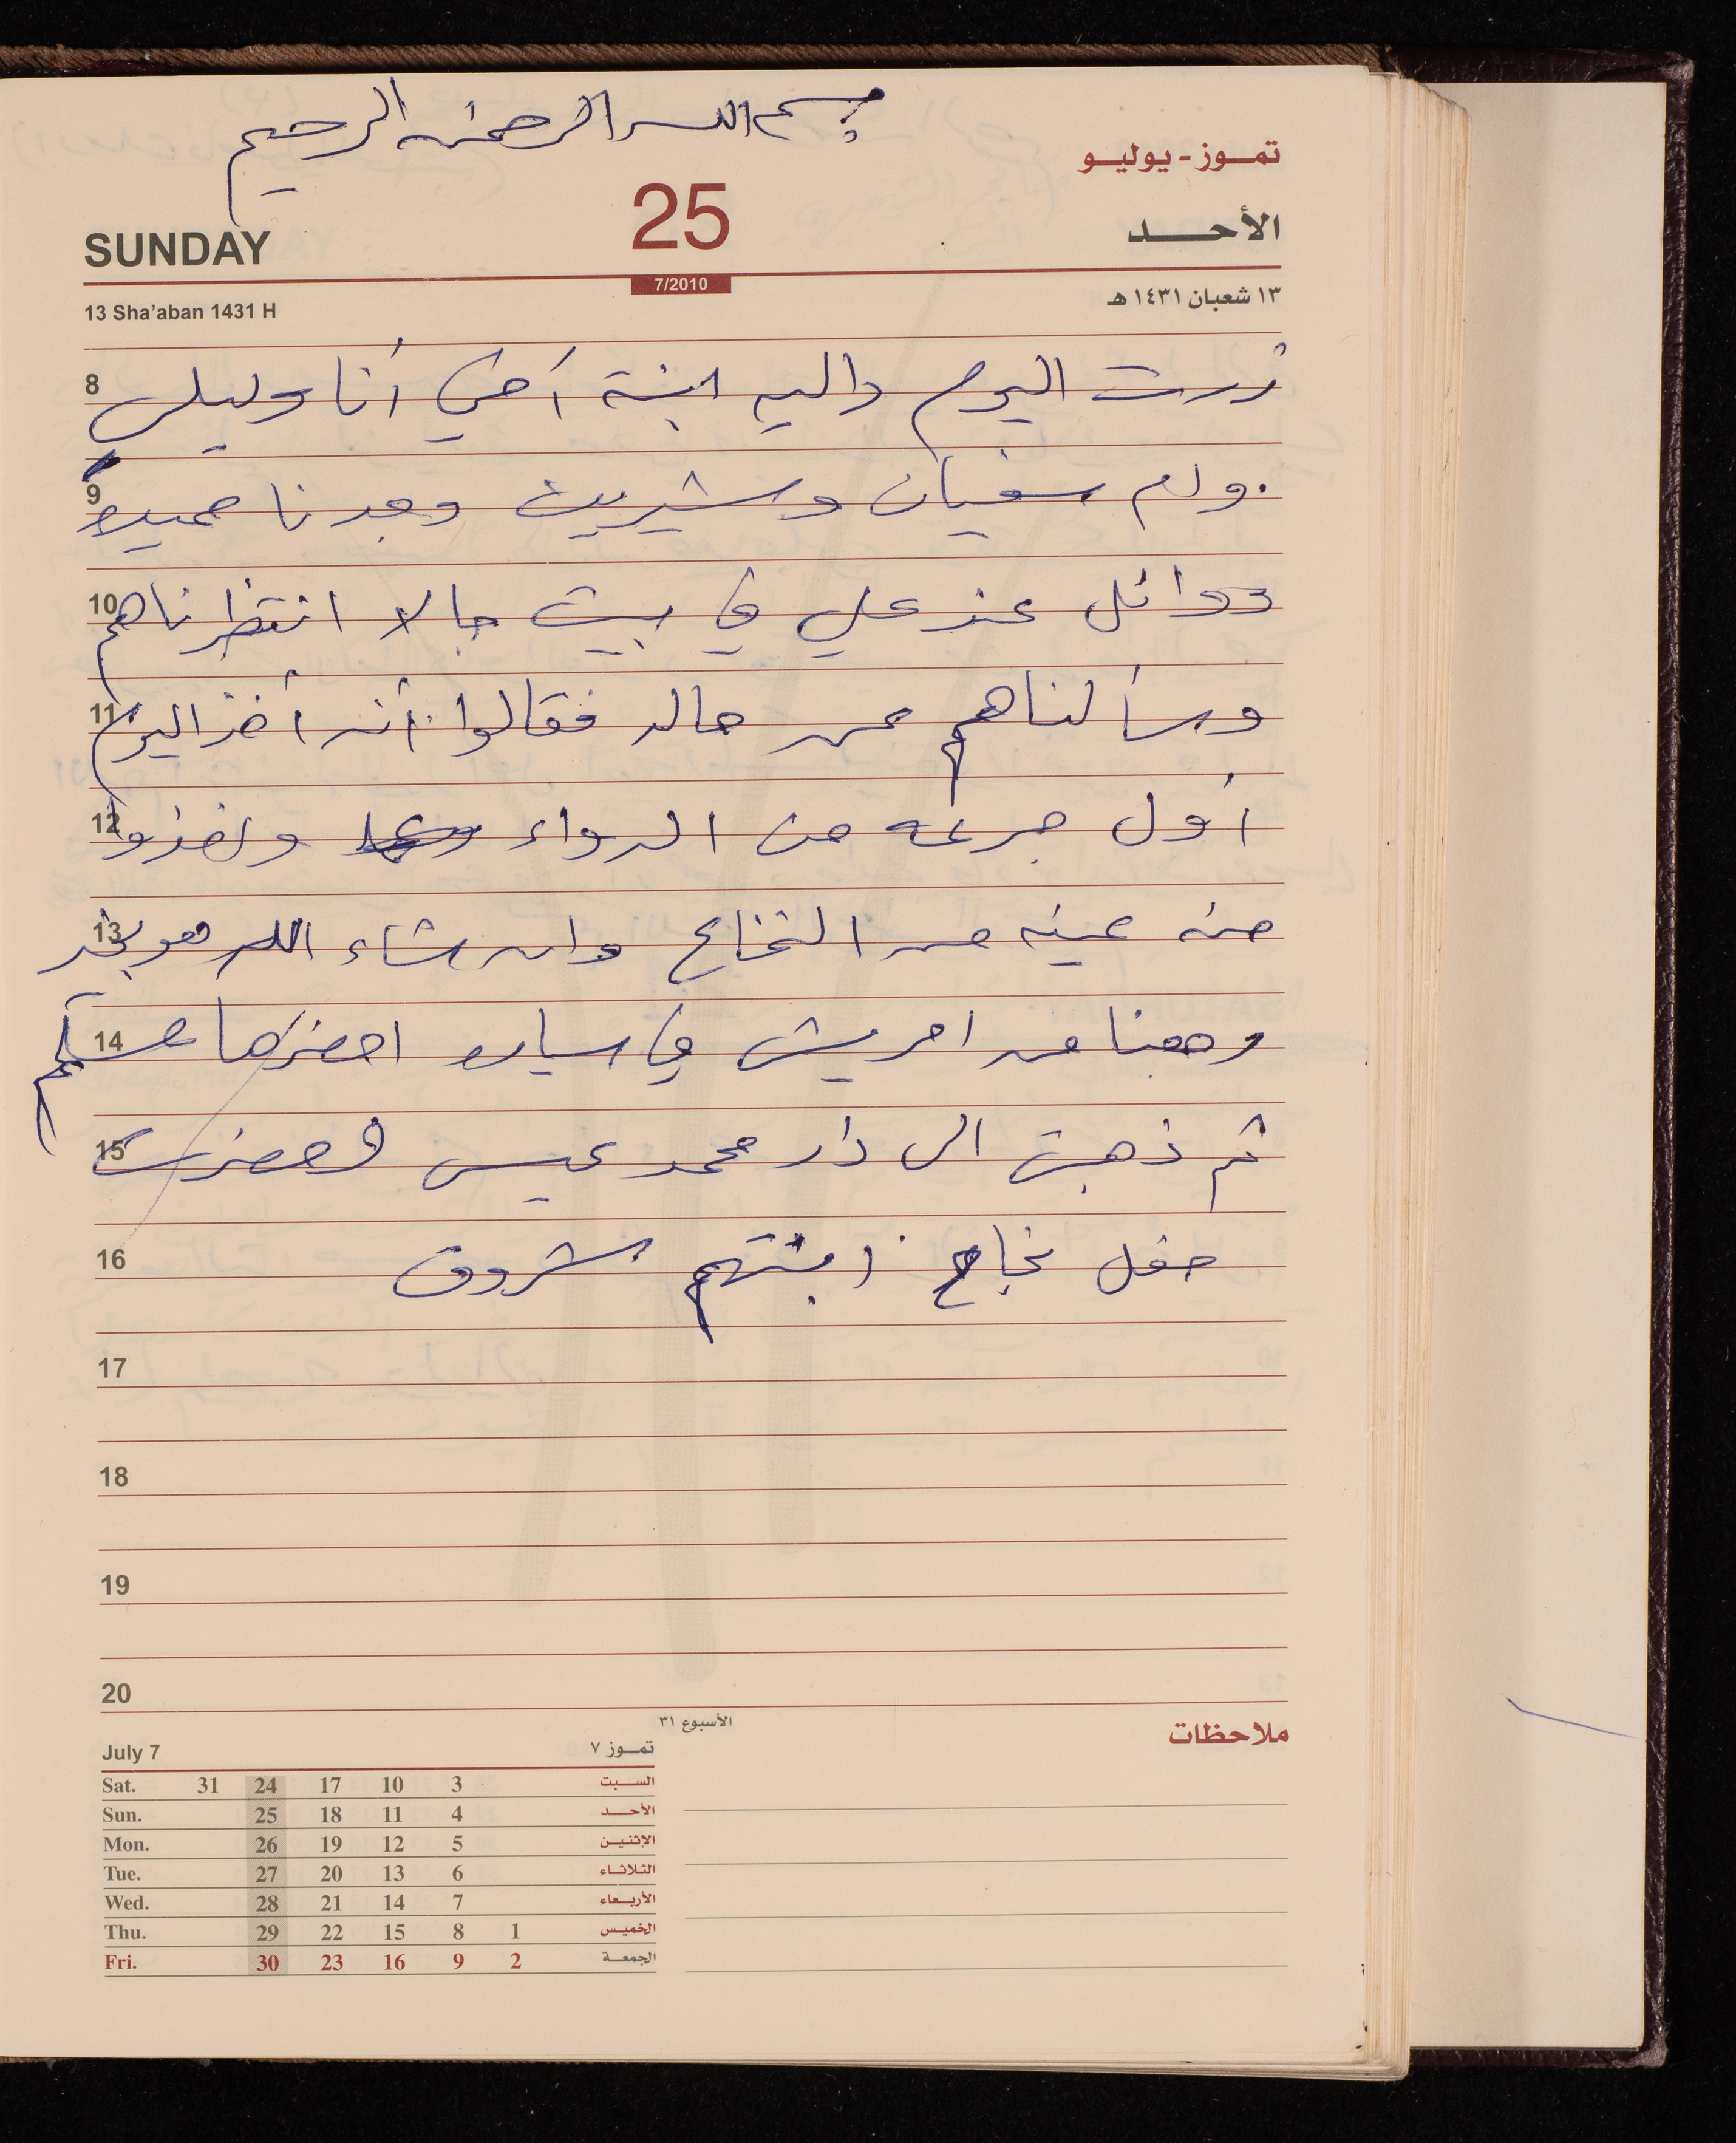 بسم الله الرحمن الرحيم
تمـوز - يوليـو
25
SUNDAY
الأحـــد
7/2010
13 Sha'aban 1431 H
١٣ شعبان ١٤٣١ هـ
8 زرت اليوم داليه ابنة أختي أنا وليلى
9 وام سفيان وشيرين وجدنا
10 ووائل عند علي في بيت جالا انتظرناهم
11 وسألناهم عن حاله فقالوا أنه أخذ اليوم
12 أول جرعه من الدواء وأخذوا
13 منه عينه من النخاع وان شاء الله هو بخير
14 في سياره احضرها
15 ثم ذهبت الى دار محمد عيسى فحضرت
16 حفل نجاح ابنتهم شروق
17
18
19
20
ملاحظات
الأسبوع ٣١
July 7 تمـوز ٧
Sat. 31 24 17 10 3 السـبت
Sun. 25 18 11 4 الأحـد
Mon. 26 19 12 5 الإثنيـن
Tue. 27 20 13 6 الثلاثـاء
Wed. 28 21 14 7 الأربـعاء
Thu. 29 22 15 8 1 الخميـس
Fri. 30 23 16 9 2 الجمعـة